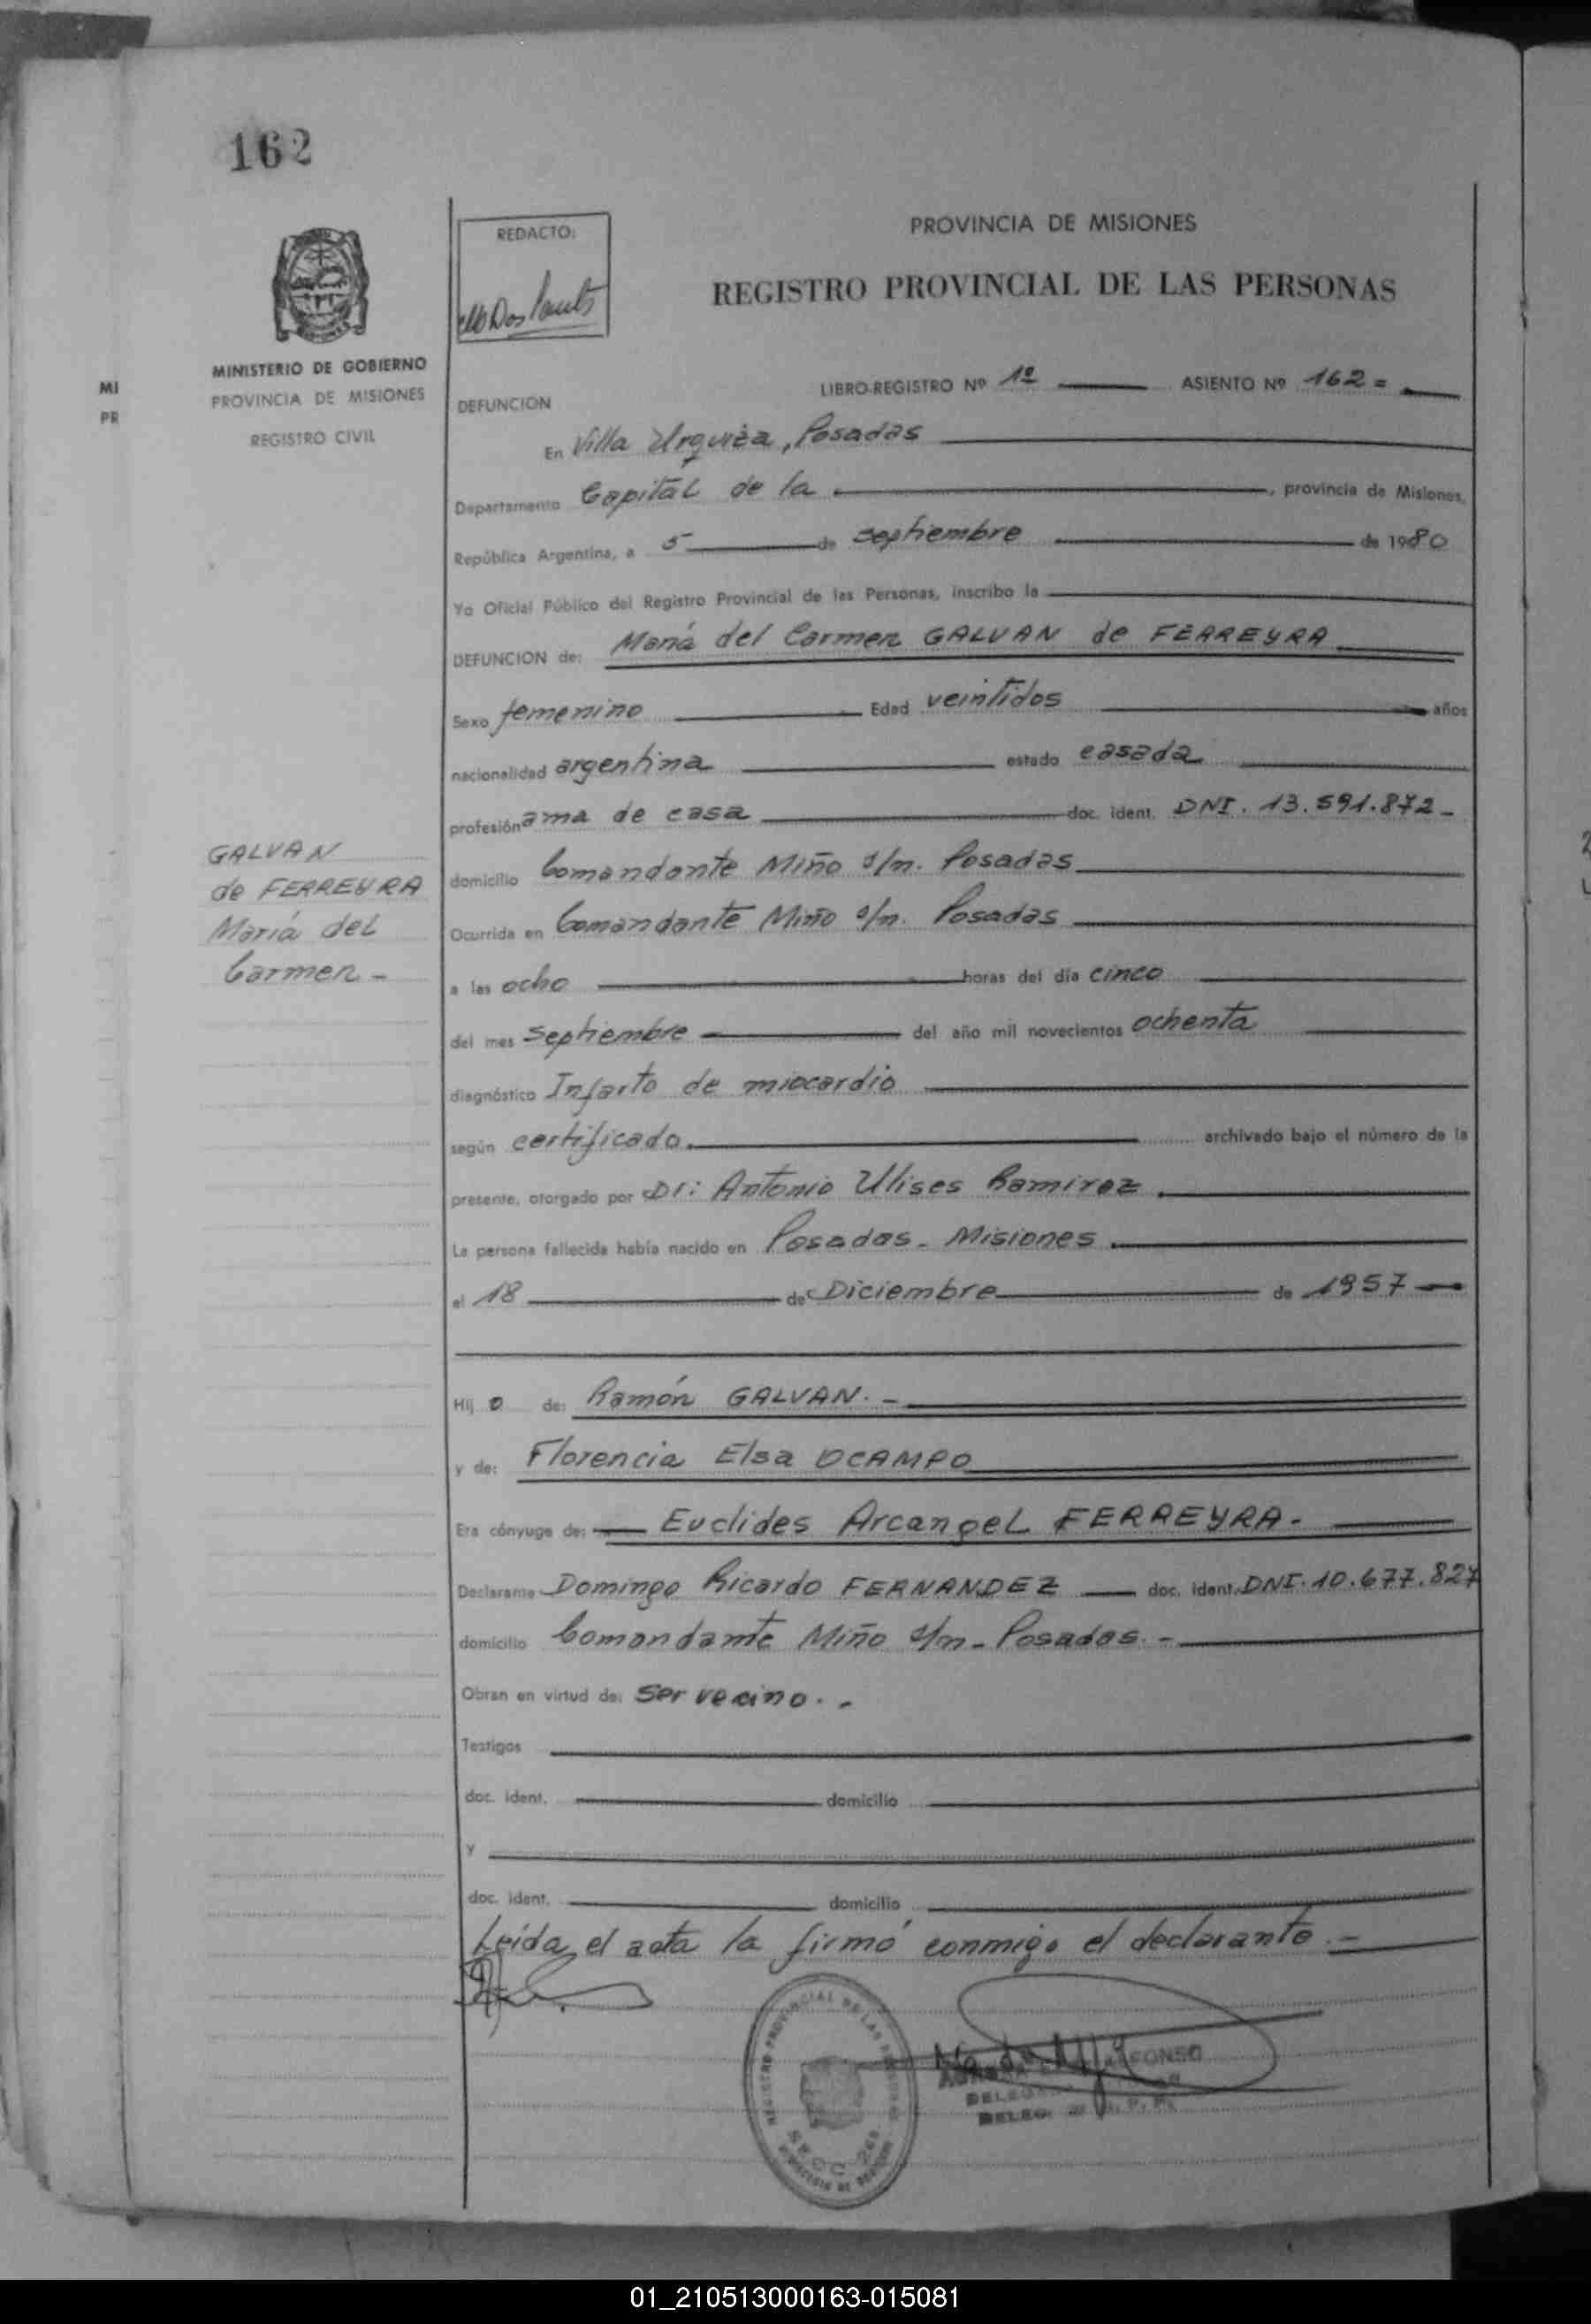 162
REDACTO:
PROVINCIA DE MISIONES
REGISTRO PROVINCIAL DE LAS PERSONAS
MINISTERIO DE GOBIERNO
PROVINCIA DE MISIONES
REGISTRO CIVIL
MI
PR
LIBRO-REGISTRO Nº 1º ASIENTO Nº 162 =
DEFUNCION
En Villa Urquiza, Posadas
Departamento Capital de la , provincia de Misiones,
República Argentina, a 5 de septiembre de 1980
Yo Oficial Público del Registro Provincial de las Personas, inscribo la
DEFUNCION de: María del Carmen GALVAN de FERREYRA
Sexo femenino Edad veintidos años
nacionalidad argentina estado casada
profesión ama de casa doc. ident. DNI. 13.591.872-
domicilio Comandante Miño s/n. Posadas
Ocurrida en Comandante Miño s/n. Posadas
a las ocho horas del día cinco
del mes septiembre del año mil novecientos ochenta
diagnóstico Infarto de miocardio
según certificado. archivado bajo el número de la
presente, otorgado por Dr: Antonio Ulises Ramirez.
La persona fallecida había nacido en Posadas - Misiones.
el 18 de Diciembre de 1957
GALVAN
de FERREYRA
María del
Carmen -
Hij o de: Ramón GALVAN. -
y de: Florencia Elsa OCAMPO
Era cónyuge de: Euclides Arcangel FERREYRA -
Declarame Domingo Ricardo FERNANDEZ doc. ident. DNI. 10.677.827
domicilio Comandante Miño s/n - Posadas. -
Obran en virtud de: ser vecino. -
Testigos
doc. ident. domicilio
y
doc. ident. domicilio
Leída el acta la firmó conmigo el declarante. -
REGISTRO PROVINCIAL DE LAS
SECC.
FONSO
01_210513000163-015081